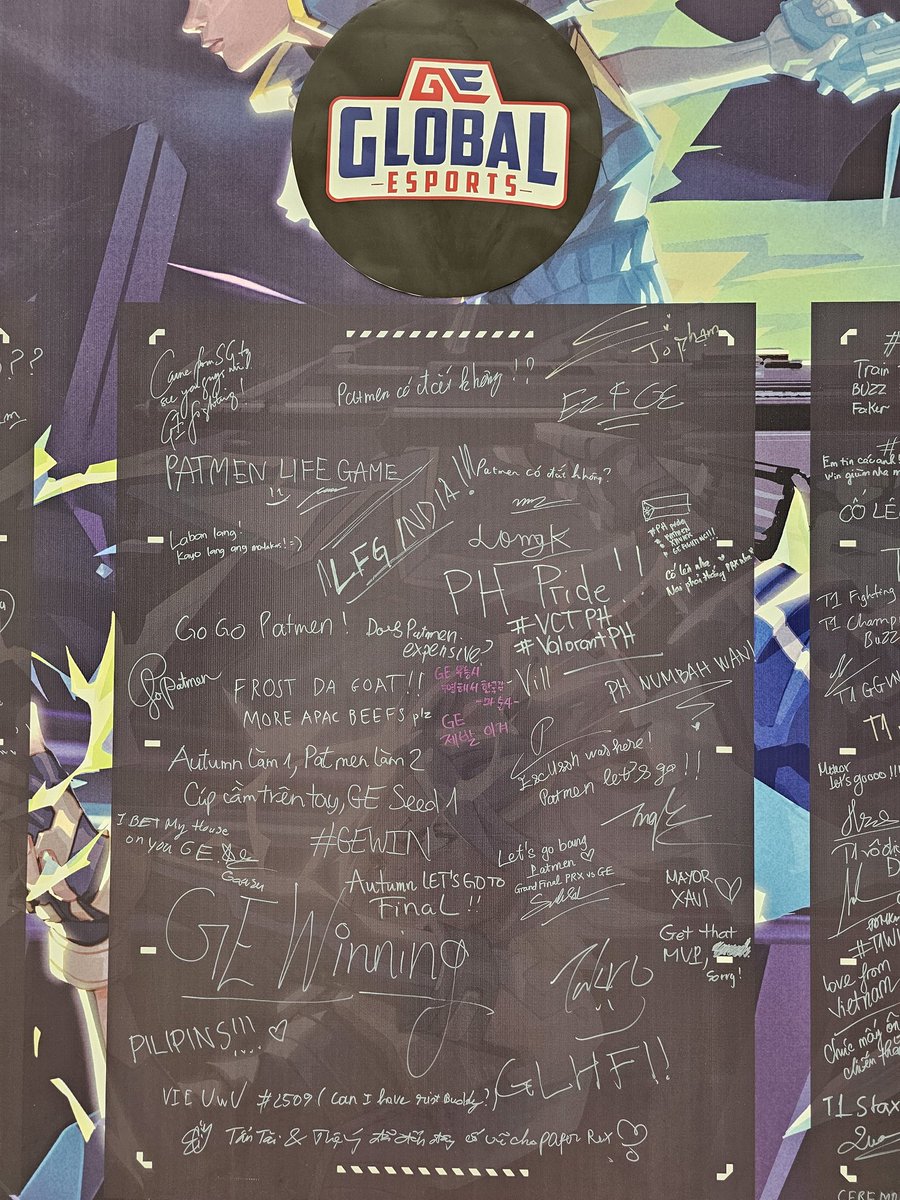 GE
GLOBAL
ESPORTS
Came from SG to
see you guys
GE fighting!
Patmen có đắt không!?
EZ 4 GE
PATMEN LIFE GAME
Patmen có đắt không?
!!LFG INDIA!!!
Laban lang!
Kayo lang ang malakas! =)
LongK
PH Pride!!
#VCTPH
#ValorantPH
#PH pride
PATMEN
XAVI8K
GE FIGHTING!!!
Cố lên nha
PRX nha
Go Go Patmen!
Does Patmen
expensive?
Go Patmen
FROST DA GOAT!!
MORE APAC BEEFS plz
GE 우승시
GE
제발 이겨
-Vill
PH NUMBAH WAN!
Autumn làm 1, Patmen làm 2
Cúp cầm trên tay, GE Seed 1
#GEWIN
was here!
Patmen let's go!!
I BET My House
on you GE
Autumn LET'S GO TO
FinaL!!
Let's go bang
Patmen
Grand Final PRX vs GE
MAYOR
XAVI
Get that
MVP,
sorry!
GE Winning
PILIPINS!!!
GLHF!!
VIE UwU #2509 (Can I have riot Buddy?)
Tấn Tài & đã đến đây cổ vũ cho Paper Rex
??
#
Train
BUZZ
Faker
#
Em tin các anh
Win giùm nha
CỐ LÊ
T1 Fighting
T1 Champ
Buzz
T1 GGW
T1
Meteor
Let's goooo!!!
T1 vô đị
#T1WI
love from
Vietnam
Chúc mấy
chiến thắ
T1 Stax